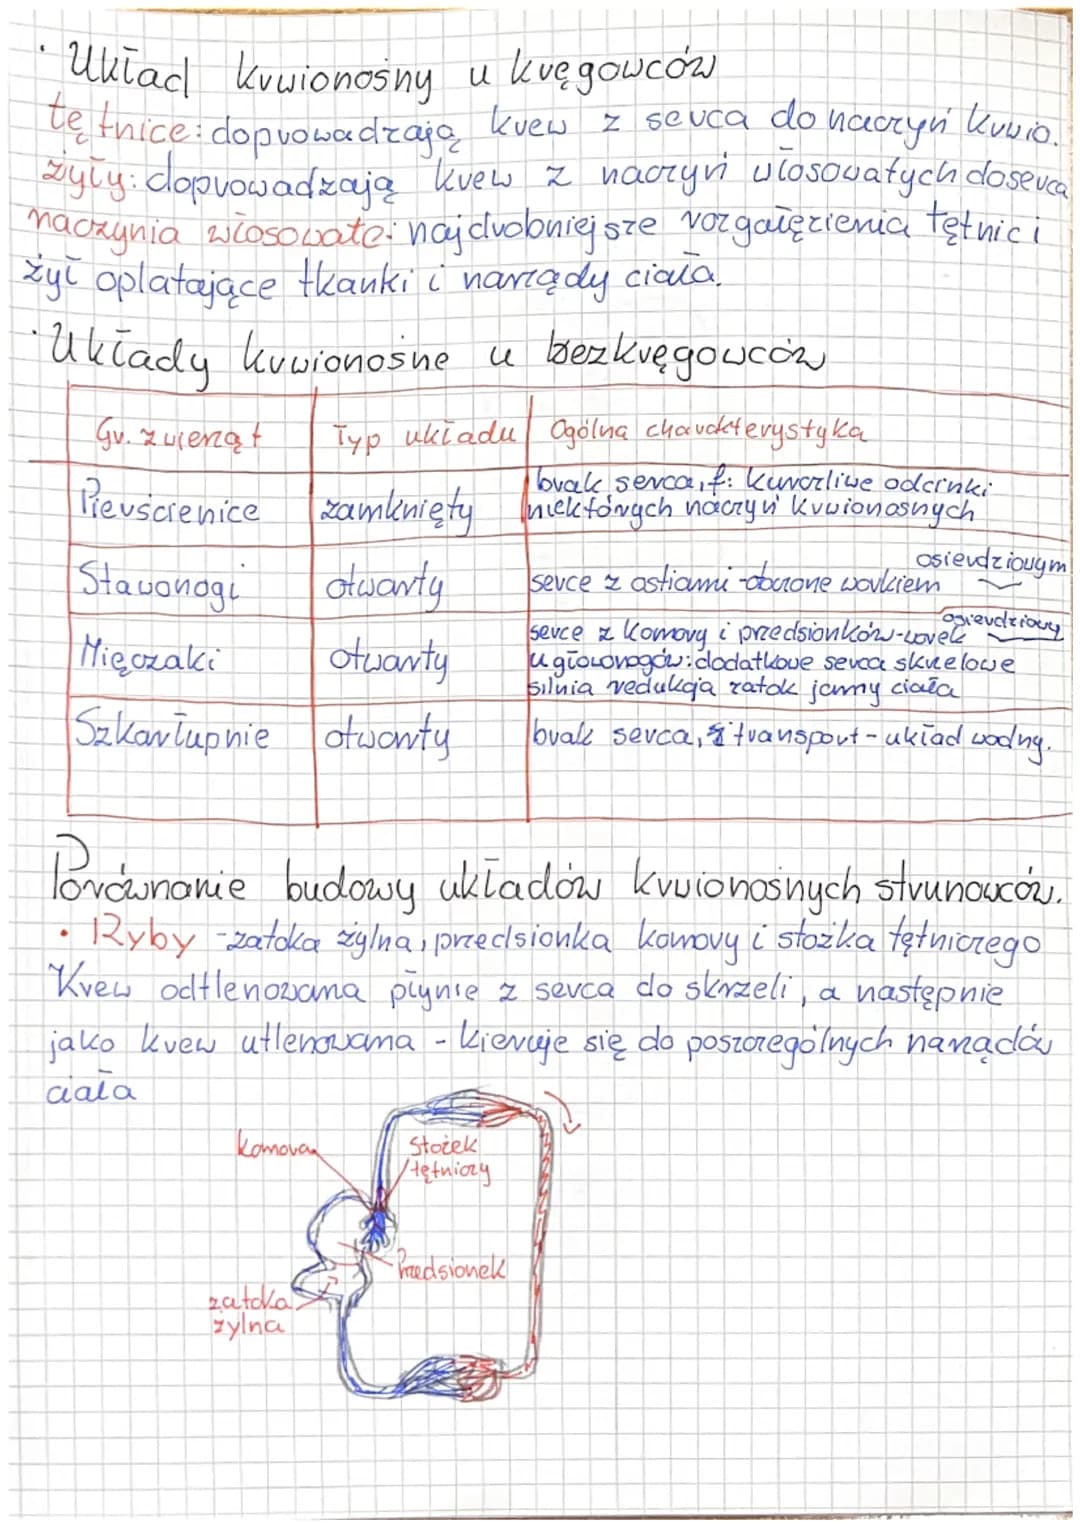 · Układ krwionośny u kręgowców
tętnice: doprowadzają krew z serca do naczyń krwio.
żyły: doprowadzają krew z naczyń włosowatych do serca
naczynia włosowate: najdrobniejsze rozgałęzienia tętnic i
żył oplatające tkanki i narządy ciała.
· Układy krwionośne u bezkręgowców
Gr. zwierząt Typ układu Ogólna charakterystyka
Pierścienice zamknięty brak serca, f: kurczliwe odcinki
niektórych naczyń krwionośnych
Stawonogi otwarty serce z ostiami - otoczone workiem osierdziowym
Mięczaki otwarty serce z komory i przedsionków - worek osierdziowy
u głowonogów: dodatkowe serca skrzelowe
silnia redukcja zatok jamy ciała
Szkarłupnie otwarty brak serca, transport - układ wodny.
Porównanie budowy układów krwionośnych strunowców.
· Ryby - zatoka żylna, przedsionka komory i stożka tętniczego
Krew odtlenowana płynie z serca do skrzeli, a następnie
jako krew utlenowana - kieruje się do poszczególnych narządów
ciała
komora Stożek
tętniczy
Przedsionek
zatoka
żylna